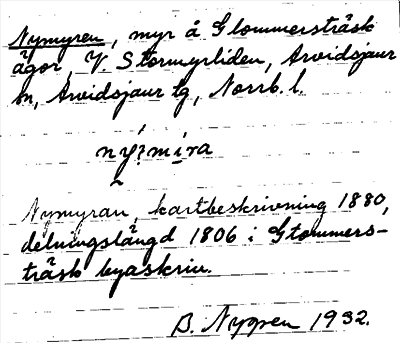 Nymyren, myr å Glommersträsk
ägor, V Stormyrliden, Arvidsjaur
sn, Arvidsjaur tg, Norrb. l.
Nymyran, kartbeskrivning 1880,
delningslängd 1806 i Glommers-
träsk byaskriv.
B. Nygren 1932.